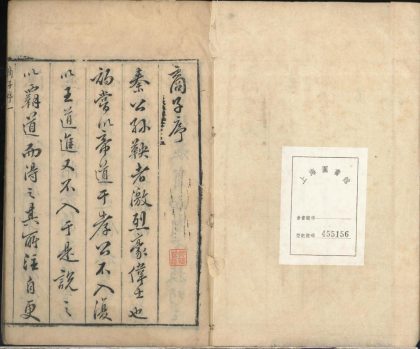 商子序
秦公孫鞅者激烈豪偉士也
初嘗以帝道干孝公不入復
以王道進又不入于是說之
以霸道而得之其所注自更
上海圖書館
登記號碼 455156